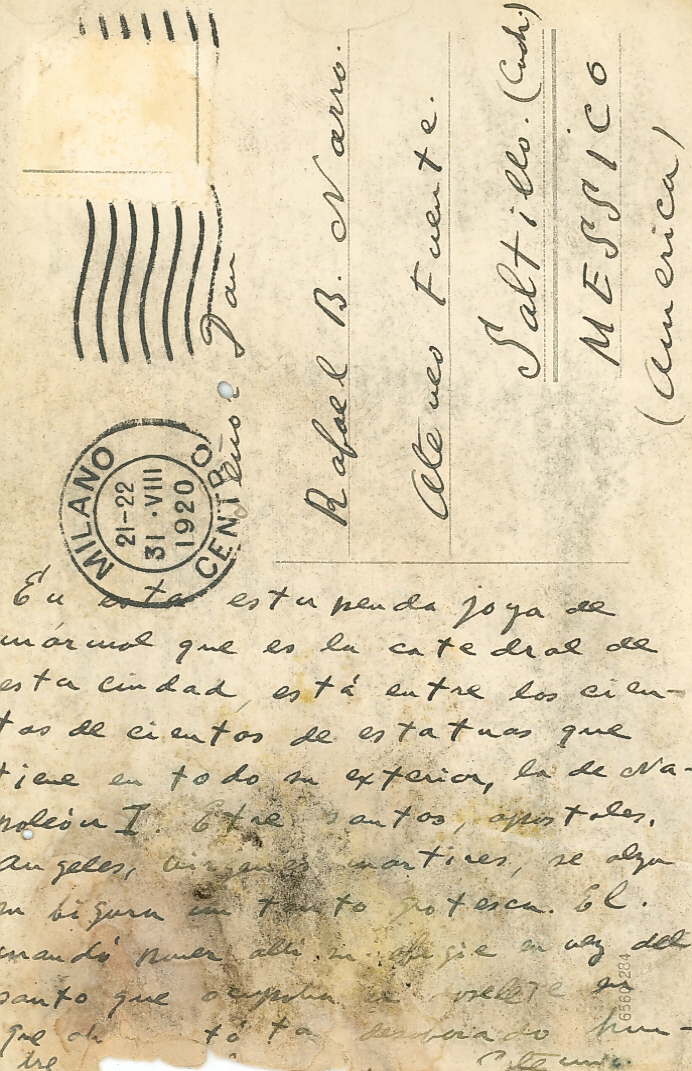 MILANO CENTRO
21-22
31·VIII
1920
Señor Don
Rafael B. Narro.
Ateneo Fuente.
Saltillo. (Coah.)
MESSICO
(America)
En esta estupenda joya de
mármol que es la catedral de
esta ciudad, está entre los cien-
tos de cientos de estatuas que
tiene en todo su exterior, la de Na-
poleón I. Etre santos, apostoles,
angeles, virgenes martires, se alza
su figura un tanto grotesca. El
mandó poner alli su efigie en vez del
santo que ocupaba
que
65601284